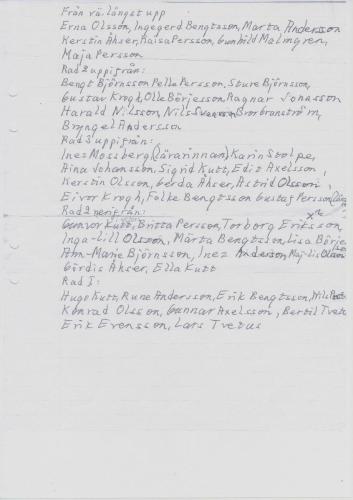 Från vä. längst upp
Erna Olsson, Ingegerd Bengtsson, Märta Andersson
Kerstin Åkser, Kaisa Persson, Gunhild Malmgren,
Maja Persson
Rad 2 uppifrån:
Bengt Björnsson Pelle Persson, Sture Björnsson,
Gustav Krogh, Olle Börjesson, Ragnar Jonasson
Harald Nilsson, Nils Svensson, Bror branström,
Bryngel Andersson
Rad 3 uppifrån:
Inez Mossberg, (lärarinnan) Karin Stolpe,
Aina Johansson, Sigrid Kutt, Edit Axelsson,
Kerstin Olsson, Gerda Åkser, Astrid Olsson,
Eivor Krogh, Folke Bengtsson Gustaf Persson,
Rad 2 nerifrån:
Gunvor Kutt, Britta Persson, Torborg Eriksson,
Inga-Lill Olsson, Märta Bengtsson, Lisa Börje
Ann-Marie Björnsson, Inez Andersson, Maj-Lis Olsson
Gördis Åkser, Ella Kutt
Rad I:
Hugo Kutt, Rune Andersson, Erik Bengtsson, Nils
Konrad Olsson, Gunnar Axelsson, Bertil Tvete
Erik Evensson, Lars Tvetus